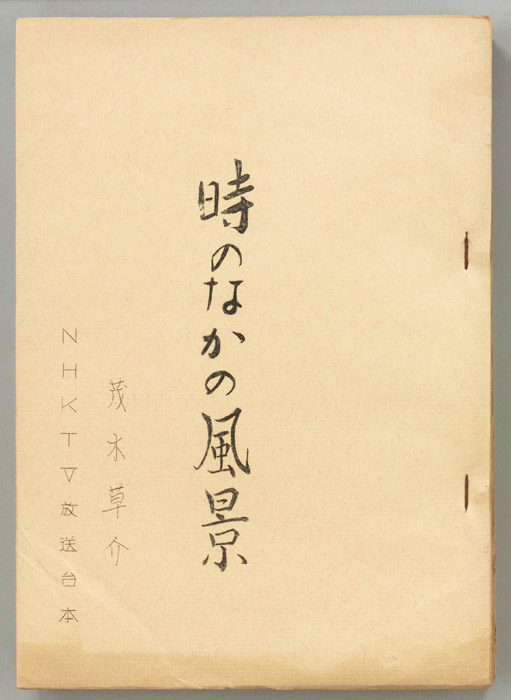 時のなかの風景
茂木草介
NHKTV放送台本